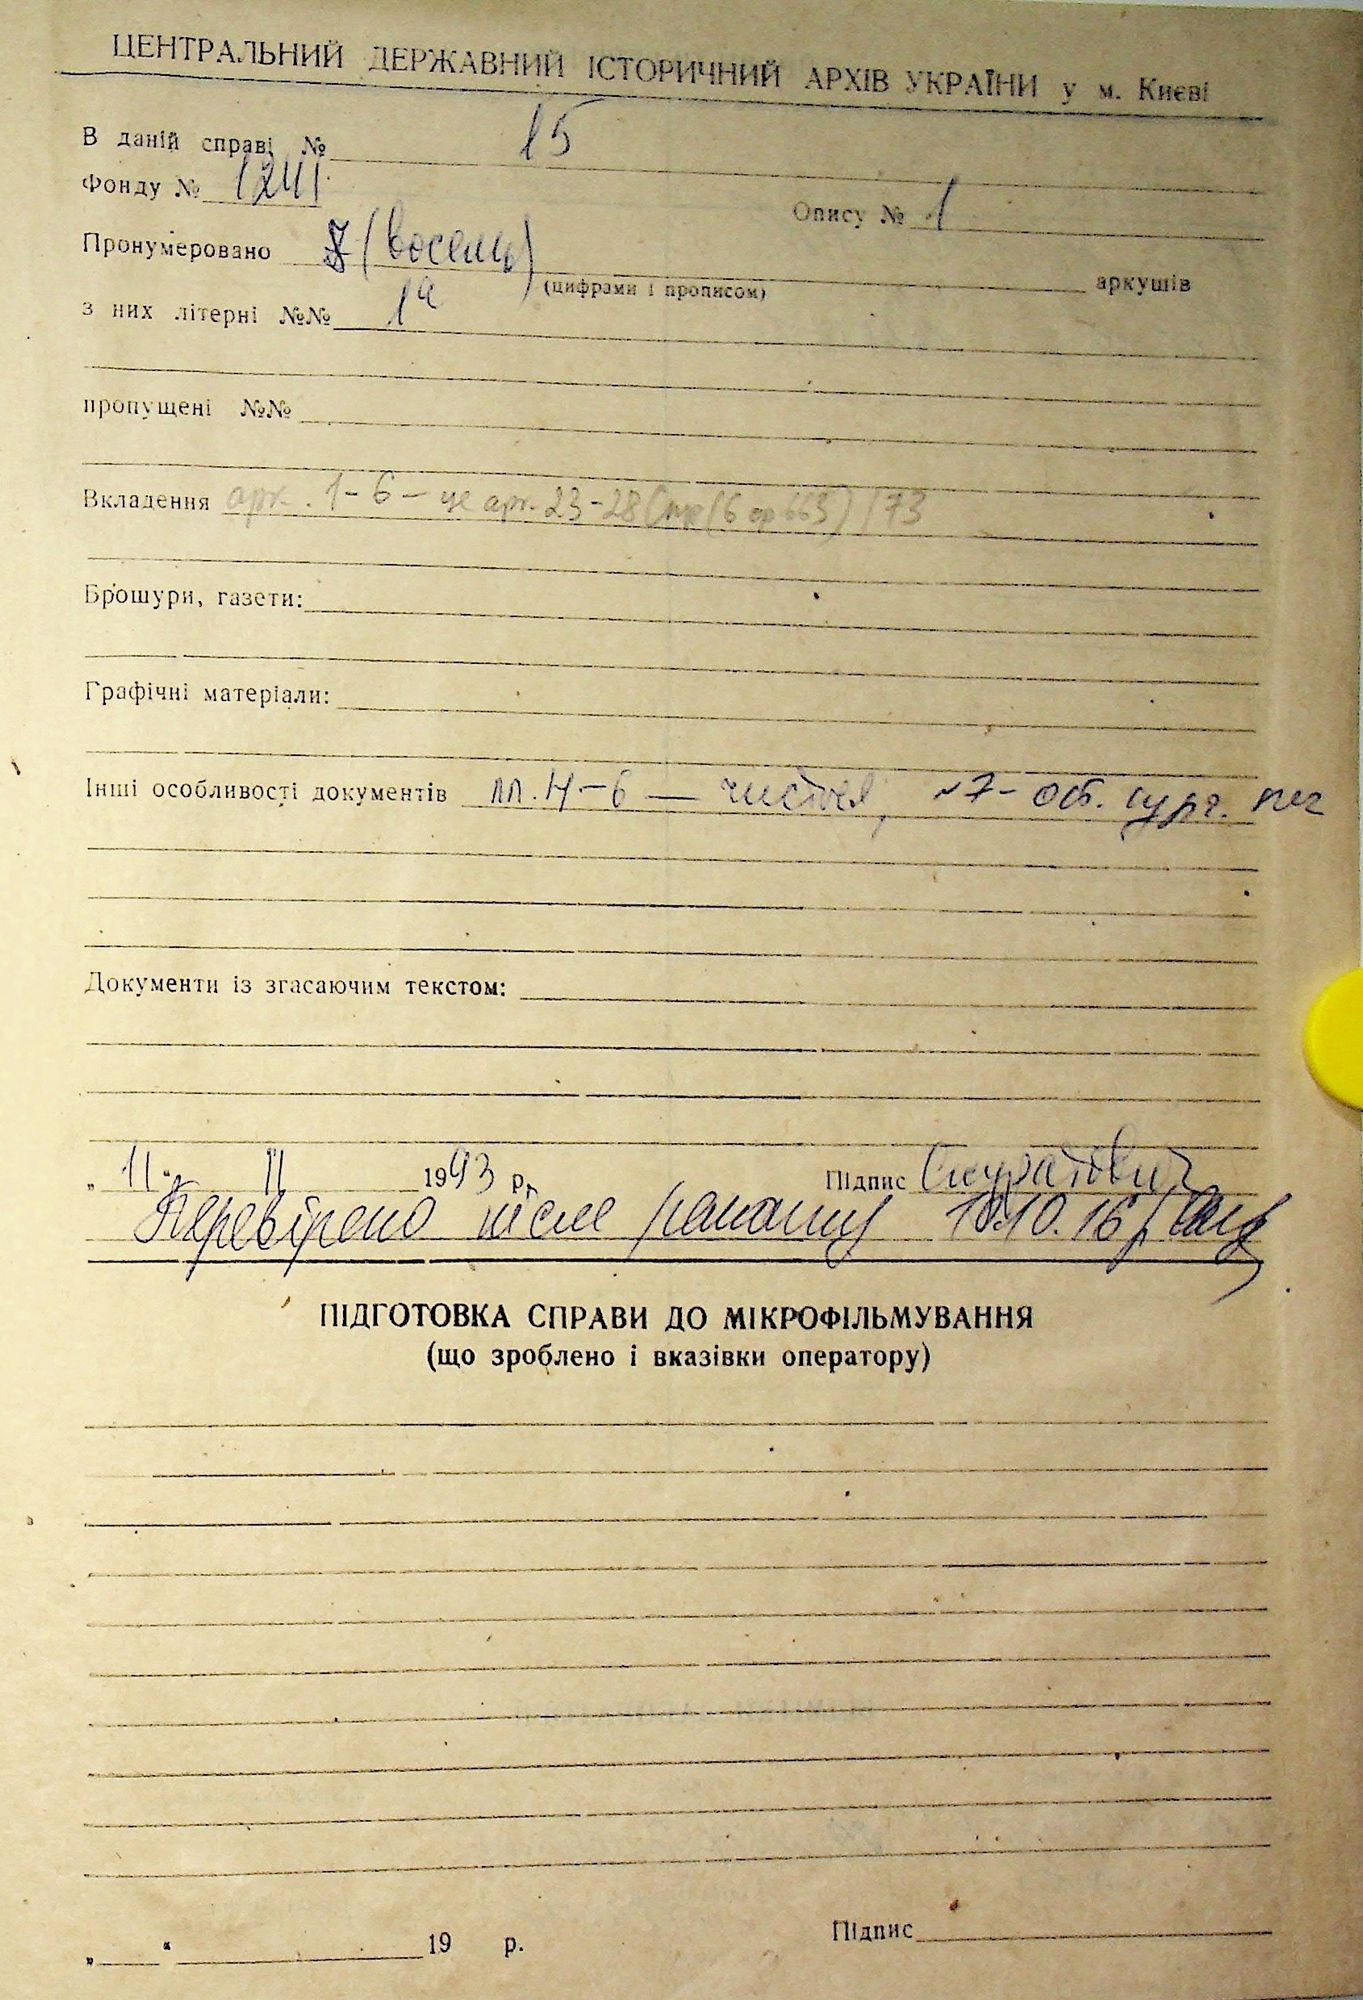 ЦЕНТРАЛЬНИЙ ДЕРЖАВНИЙ ІСТОРИЧНИЙ АРХІВ УКРАЇНИ у м. Києві
В даній справі № 15
Фонду № 1241 Опису № 1
Пронумеровано (восемь) аркушів
(цифрами і прописом)
з них літерні №№ 1а
пропущені №№
Вкладення арк. 1-6 - це арк. 23-28
Брошури, газети:
Графічні матеріали:
Інші особливості документів лл. 4-6 — чистые, л7- ост. сург. печ
Документи із згасаючим текстом:
„ 11 “ 11 1993 р. Підпис
Перевірено після 10.10.16 р.
ПІДГОТОВКА СПРАВИ ДО МІКРОФІЛЬМУВАННЯ
(що зроблено і вказівки оператору)
„ “ 19 р. Підпис